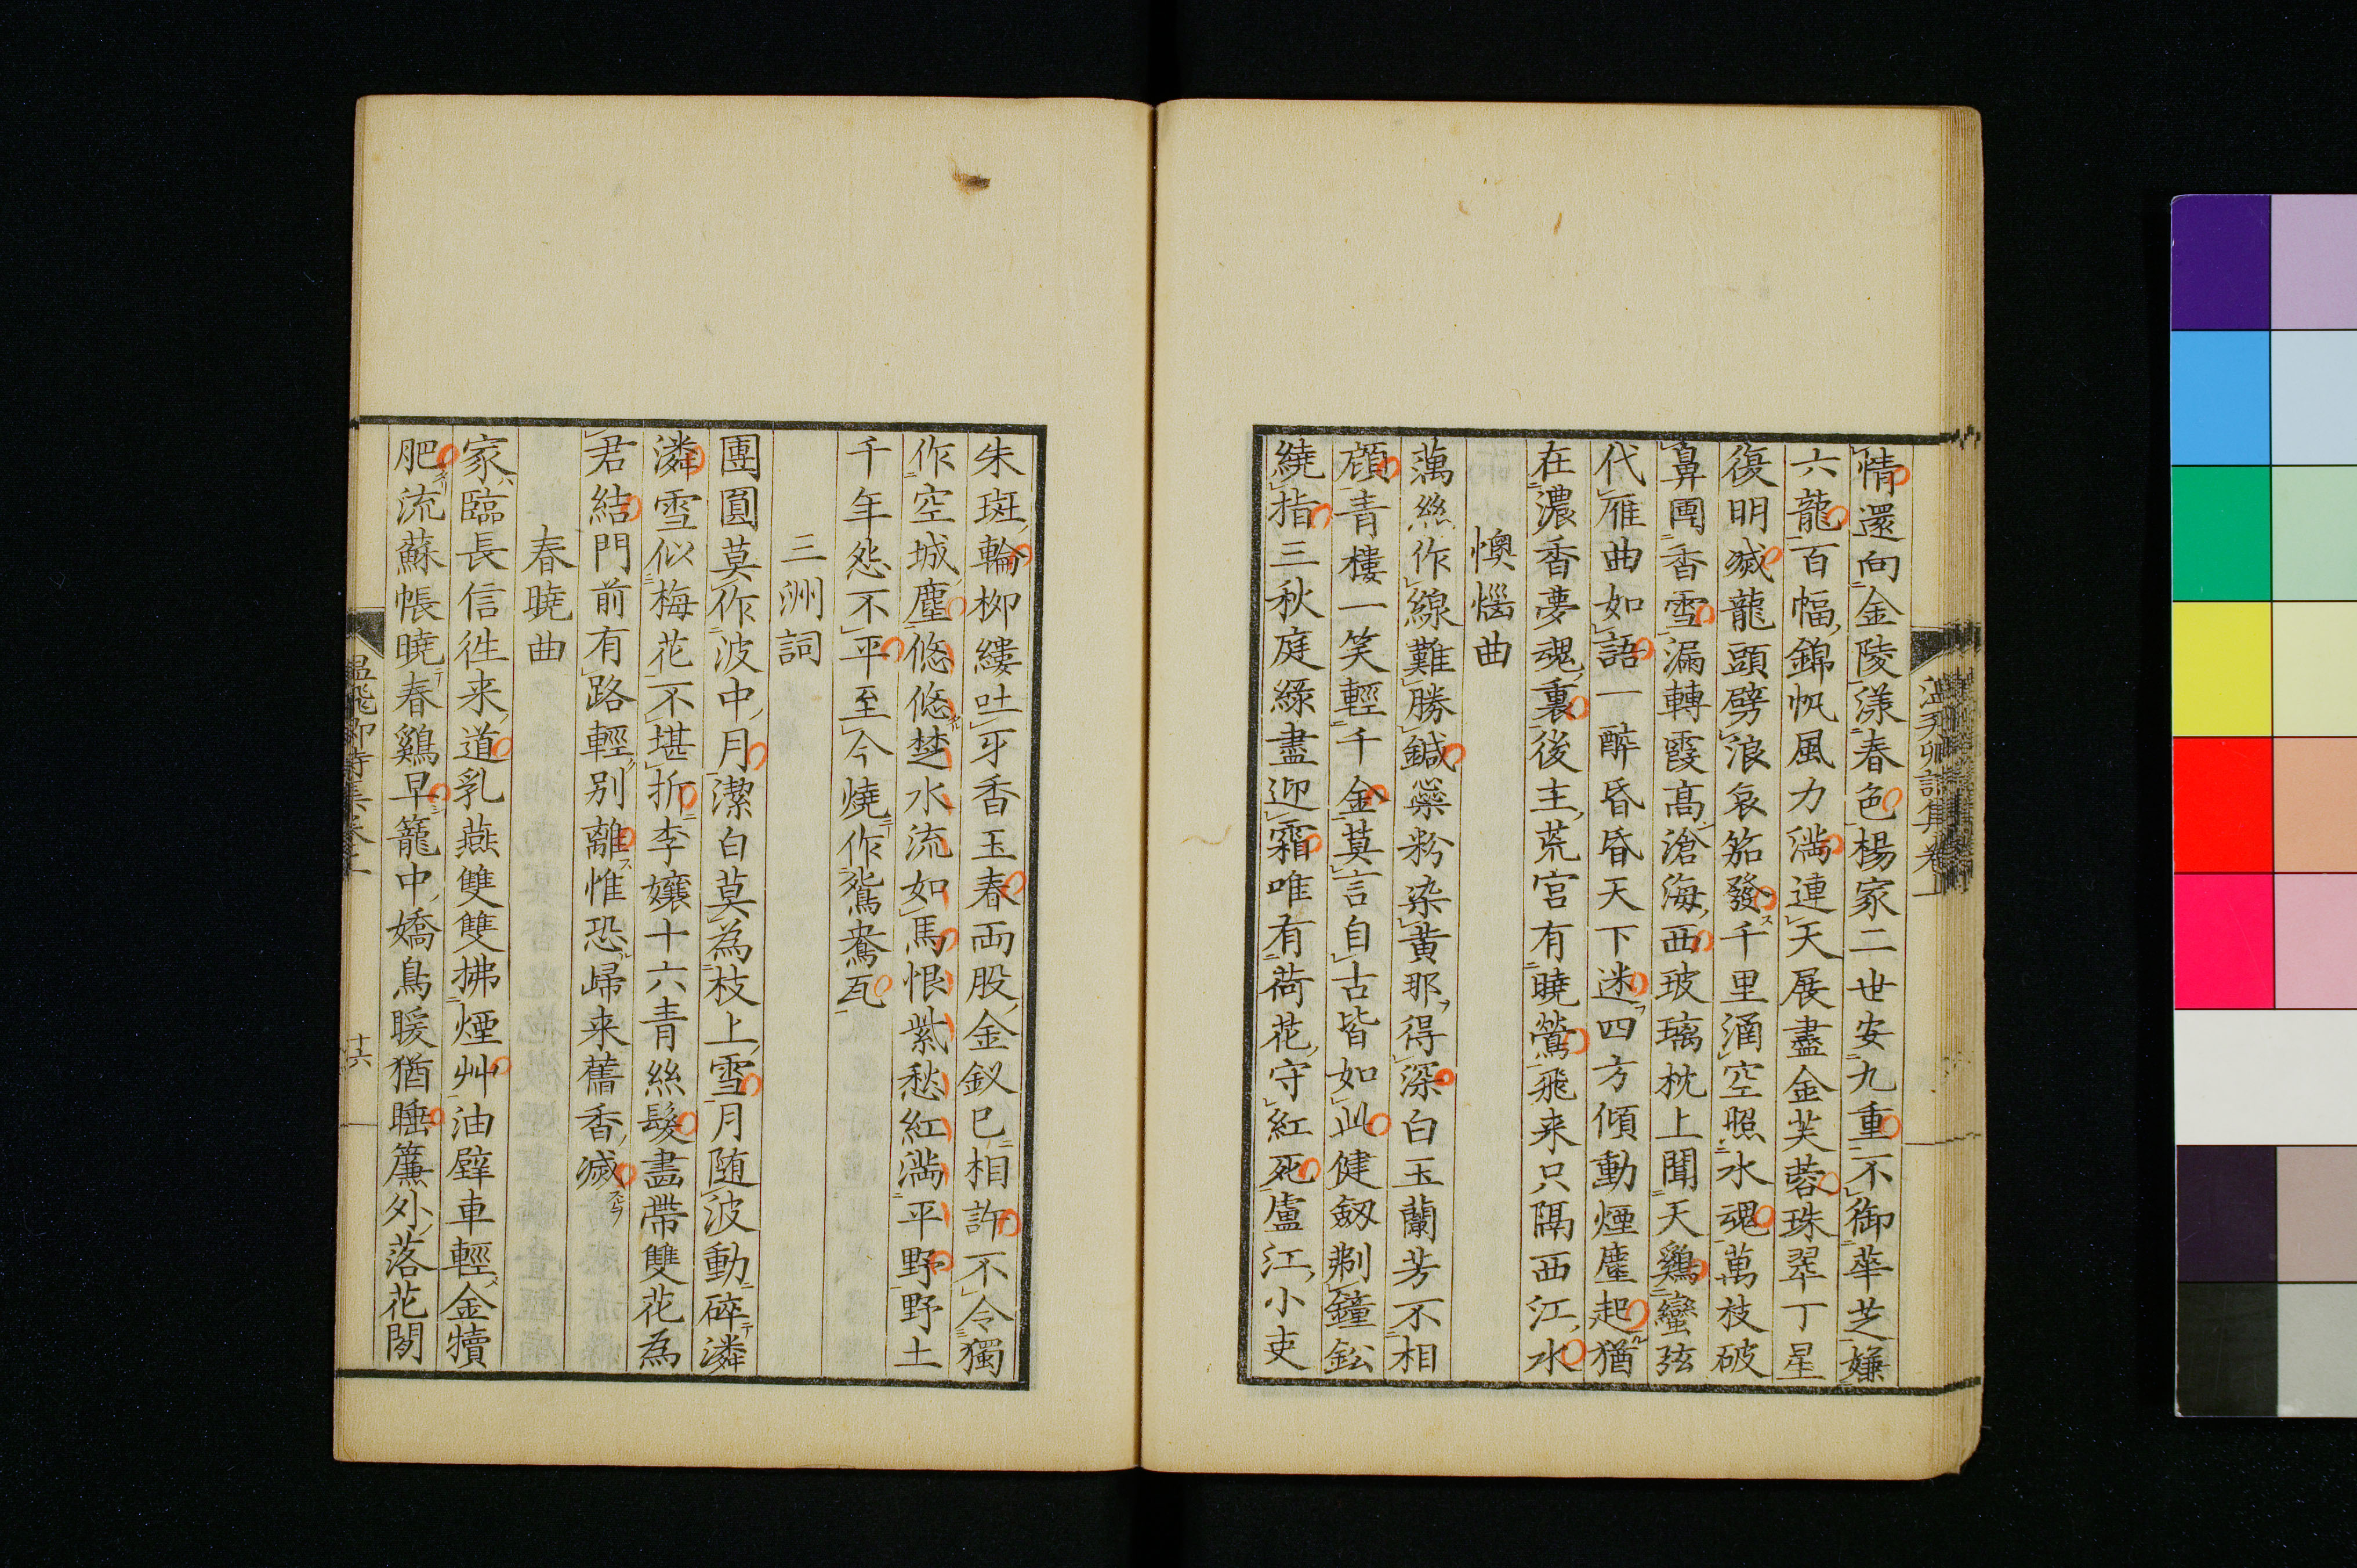 情還向金陵漾春色楊家二世安九重不御華芝嫌
六龍百幅錦帆風力満連天展盡金芙蓉珠翠丁星
復明滅龍頭劈浪哀笳發千里涵空照水魂萬枝破
鼻團香雪漏轉霞高滄海西玻璃枕上聞天鷄蠻弦
代雁曲如語一醉昏昏天下迷四方傾動煙塵起猶
在濃香夢魂裏後主荒宮有曉鶯飛来只隔西江水
懊惱曲
藕絲作線難勝鍼蘂粉染黄那得深白玉蘭芳不相
顔青樓一笑輕千金莫言自古皆如此健劔剸鐘鉛
繞指三秋庭緑盡迎霜唯有荷花守紅死盧江小吏
朱斑輪栁縷吐牙香玉春両股金釵已相許不令獨
作空城塵悠悠楚水流如馬恨紫愁紅満平野野土
千年怨不平至今燒作鴛鴦瓦
三洲詞
團圓莫作波中月潔白莫為枝上雪月随波動碎潾
潾雪似梅花不堪折李孃十六青絲髮畵帶雙花為
君結門前有路輕别離惟恐歸来舊香滅
春曉曲
家臨長信徃来道乳燕雙雙拂煙艸油壁車輕金犢
肥流蘇帳曉春鷄早籠中嬌鳥暖猶睡簾外落花閒
温飛卿詩集卷上
十六